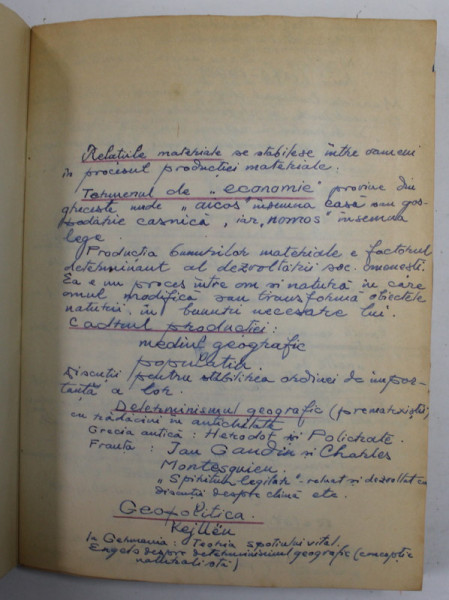 Relațiile materiale se stabilesc între oameni
în procesul producției materiale.
Termenul de "economie" provine din
grecește unde "aicos" însemna casă sau gos-
podărie casnică, iar "nomos" însemna
lege.
Producția bunurilor materiale e factorul
determinant al dezvoltării soc. omenești.
Ea e un proces între om și natură în care
omul modifică sau transformă obiectele
naturii în bunuri necesare lui.
Cadrul producției:
mediul geografic
populația.
Discuții pentru stabilirea ordinei de impor-
tanță a lor.
Determinismul geografic (premarxist)
cu rădăcini în antichitate
Grecia antică: Herodot și Policrate.
Franța: Jan Gaudin și Charles
Montesquieu.
"Spiritul legilor" reluat și dezvoltat cu
discuții despre climă etc.
Geopolitica.
Kejllén
În Germania: Teoria spațiului vital.
Engels despre determinismul geografic (concepție
naturalistă)